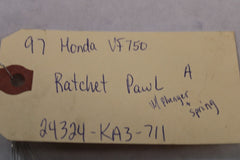 97 Honda VF750
Ratchet Pawl A
W/ Plunger + Spring
24324-KA3-711